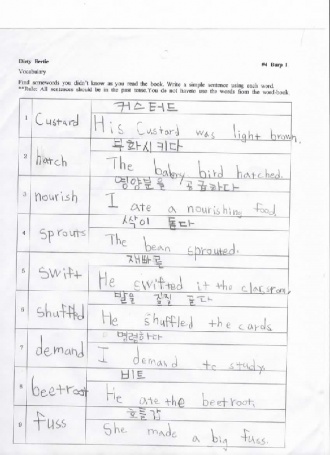 Dirty Bertie
#4 Burp 1
Vocabulary
Find somewords you didn't know as you read the book. Write a simple sentence using each word.
**Rule: All sentences should be in the past tense. You do not havene use the words from the word-book
커스터드
1 Custard His Custard was light brown.
부화시키다
2 hatch The baby bird hatched.
영양분을 공급하다
3 nourish I ate a nourishing food
싹이 돋다
4 sprouts The bean sprouted.
재빠른
5 swift He swifted it the classroom.
발을 질질 끌다
6 shuffled He shuffled the cards
명령하다
7 demand I demand to study.
비트
8 beetroot He ate the beetroot.
호들갑
9 fuss She made a big fuss.